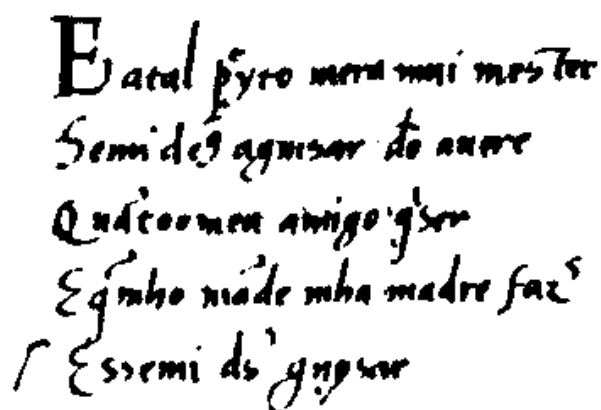 E atal p̃yto mera mui mester
Semi des aguisar do auere
Quãtoomeu amigo q̃ser
E q̃mho mãde mha madre faz
Essemi ds' guysar